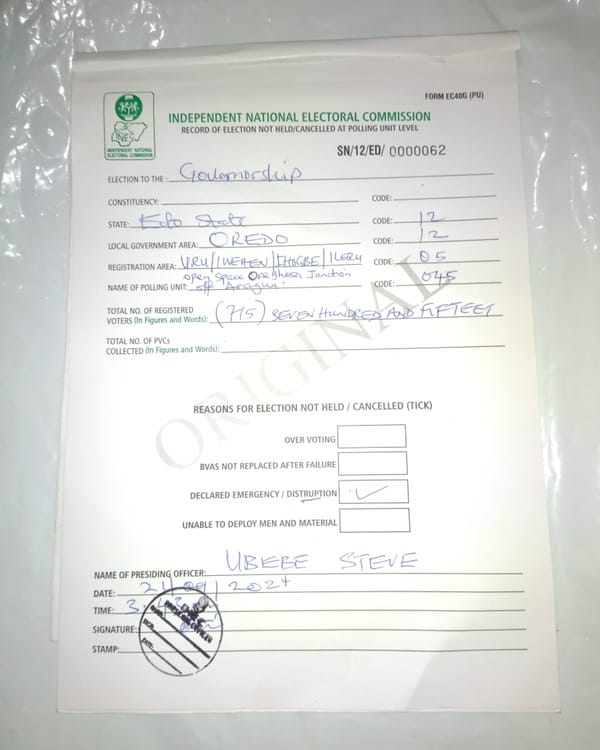 FORM EC40G (PU)
INEC
INDEPENDENT NATIONAL
ELECTORAL COMMISSION
INDEPENDENT NATIONAL ELECTORAL COMMISSION
RECORD OF ELECTION NOT HELD/CANCELLED AT POLLING UNIT LEVEL
SN/12/ED/ 0000062
ELECTION TO THE: Governorship
CONSTITUENCY: CODE:
STATE: Edo State CODE: 12
LOCAL GOVERNMENT AREA: OREDO CODE: 12
REGISTRATION AREA: URU/IWEHEN/EHOGBE/ILERU CODE: 05
Open Space Oreghosa Junction
NAME OF POLLING UNIT: off CODE: 045
TOTAL NO. OF REGISTERED
VOTERS (In Figures and Words): (715) SEVEN HUNDRED AND FIFTEET
TOTAL NO. OF PVCs
COLLECTED (In Figures and Words):
ORIGINAL
REASONS FOR ELECTION NOT HELD / CANCELLED (TICK)
OVER VOTING
BVAS NOT REPLACED AFTER FAILURE
DECLARED EMERGENCY / DISTRUPTION ✓
UNABLE TO DEPLOY MEN AND MATERIAL
NAME OF PRESIDING OFFICER: UBEBE STEVE
DATE: 21/09/2024
TIME: 3.
SIGNATURE:
STAMP: